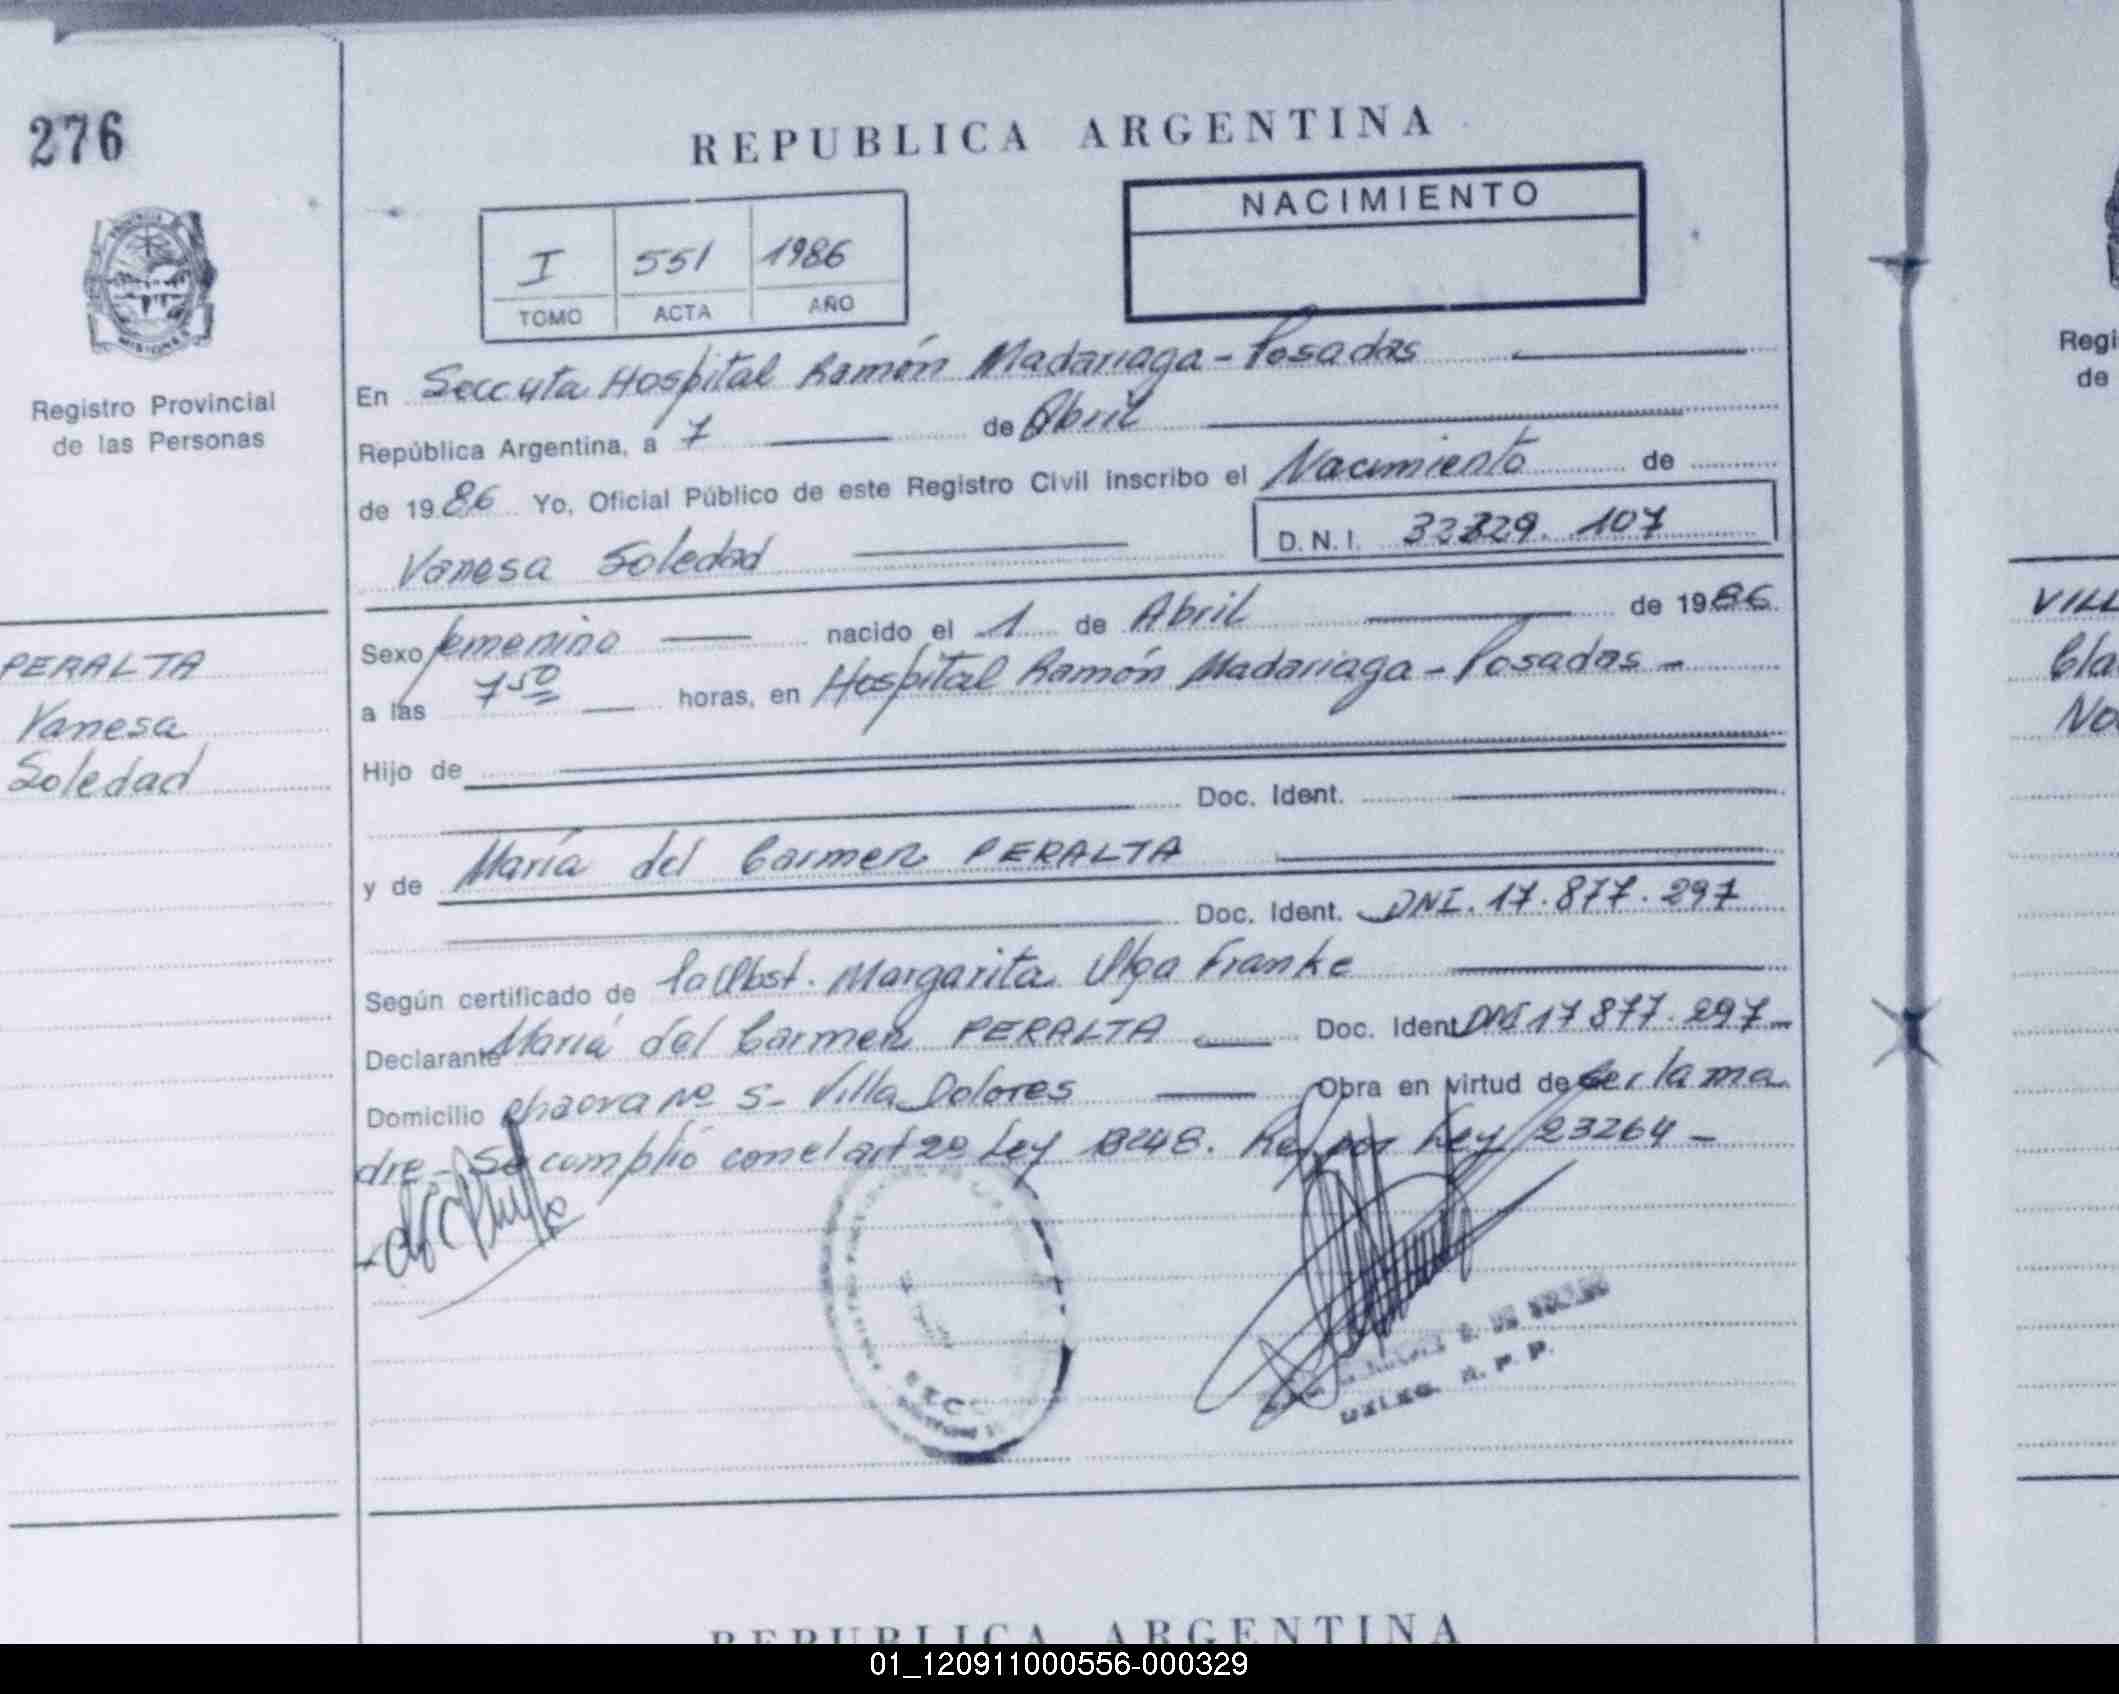 276
REPUBLICA ARGENTINA
NACIMIENTO
I 551 1986
TOMO ACTA AÑO
Registro Provincial
de las Personas
En Seccuta Hospital Ramón Madariaga - Posadas
República Argentina, a 7 de Abril
de 1986 Yo, Oficial Público de este Registro Civil inscribo el Nacimiento de
Vanesa Soledad D.N.I. 107
Sexo femenino nacido el 1 de Abril de 1986
a las 7 50 horas, en Hospital Ramón Madariaga - Posadas -
PERALTA
Vanesa
Soledad
Hijo de
Doc. Ident.
y de María del Carmen PERALTA
Doc. Ident. DNI. 17.877.297
Según certificado de la Obst. Margarita Olga Franke
Declarante María del Carmen PERALTA Doc. Ident DNI 17 877.297
Domicilio chacra Nº 5- Villa Dolores Obra en virtud de ser la ma
dre - Se cumplió con el art 2º Ley 18248. Ref por Ley 23264 -
R. P. P.
Regi
de
VILL
Cla
No
REPUBLICA ARGENTINA
01_120911000556-000329